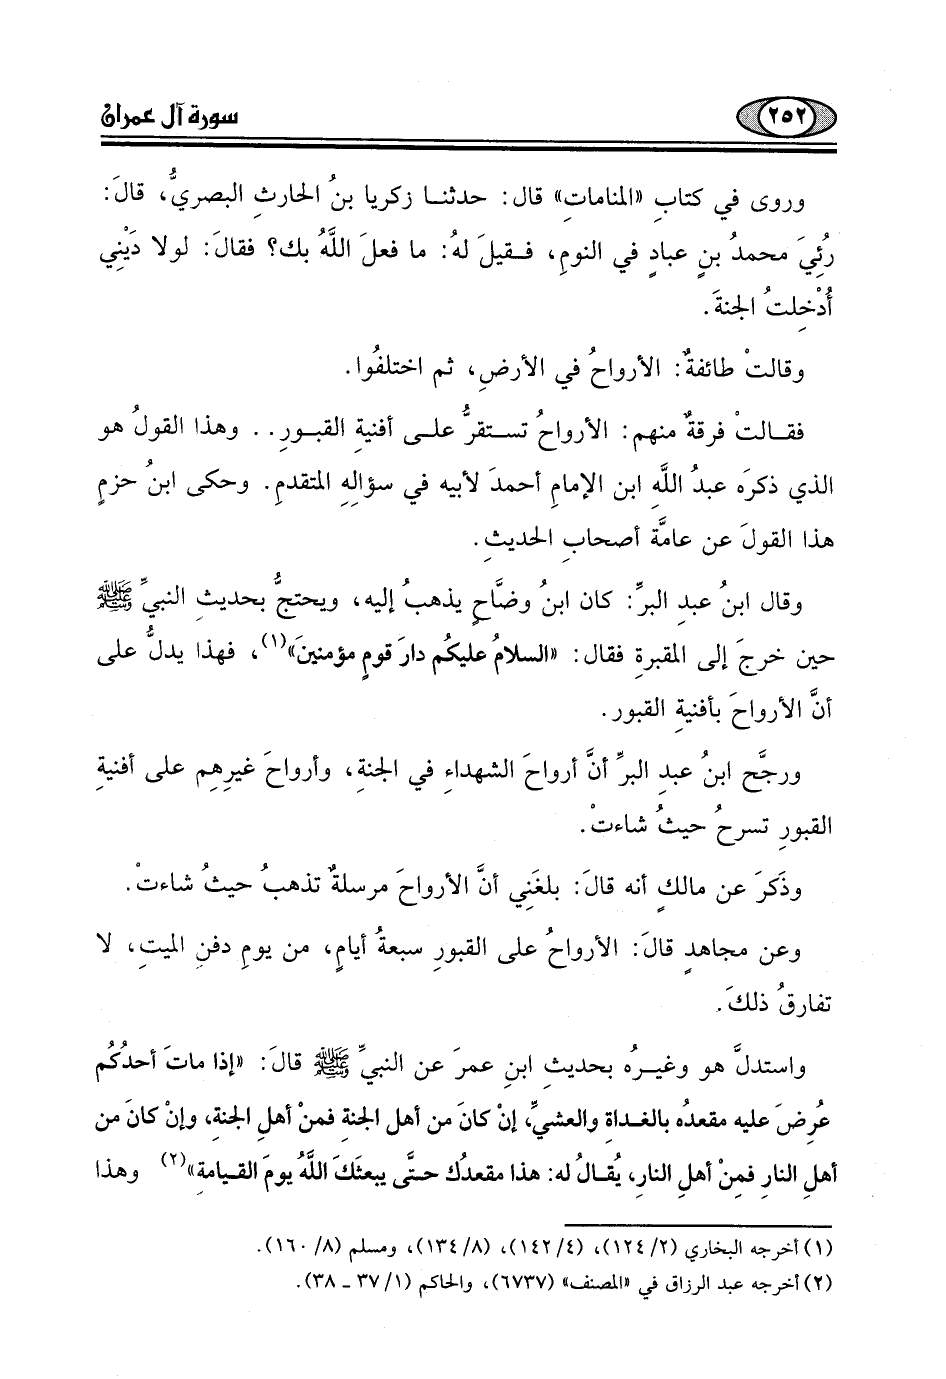 ٢٥٢
سورة آل عمران
وروى في كتابِ «المناماتِ» قال: حدثنا زكريا بنُ الحارثِ البصريُّ، قالَ:
رُئِيَ محمدُ بنِ عبادٍ في النومِ، فقيلَ لهُ: ما فعلَ اللَّهُ بك؟ فقالَ: لولا دَيْنِي
أُدْخِلتُ الجنةَ.
وقالتْ طائفةٌ: الأرواحُ في الأرضِ، ثم اختلفُوا.
فقالتْ فرقةٌ منهم: الأرواحُ تستقرُّ على أفنيةِ القبورِ.. وهذا القولُ هو
الذي ذكرَه عبدُ اللَّهِ ابن الإمامِ أحمدَ لأبيه في سؤالِهِ المتقدمِ. وحكى ابنُ حزمٍ
هذا القولَ عن عامَّة أصحابِ الحديثِ.
وقال ابنُ عبدِ البرِّ: كان ابنُ وضَّاحٍ يذهبُ إليه، ويحتجُّ بحديثِ النبيِّ ﷺ
حين خرجَ إلى المقبرةِ فقال: «السلامُ عليكُم دارَ قومٍ مؤمنينَ»(١)، فهذا يدلُّ على
أنَّ الأرواحَ بأفنيةِ القبور.
ورجَّح ابنُ عبدِ البرِّ أنَّ أرواحَ الشهداءِ في الجنةِ، وأرواحَ غيرِهِم على أفنيةِ
القبورِ تسرحُ حيثُ شاءتْ.
وذَكرَ عن مالكٍ أنه قالَ: بلغَنِي أنَّ الأرواحَ مرسلةٌ تذهبُ حيثُ شاءتْ.
وعن مجاهدٍ قالَ: الأرواحُ على القبورِ سبعةُ أيامٍ، من يومِ دفنِ الميتِ، لا
تفارقُ ذلكَ.
واستدلَّ هو وغيرُه بحديثِ ابنِ عمرَ عن النبيِّ ﷺ قالَ: «إذا ماتَ أحدُكُم
عُرِضَ عليه مقعدُه بالغداةِ والعشيِّ، إنْ كانَ من أهلِ الجنة فمنْ أهلِ الجنةِ، وإنْ كانَ من
أهلِ النارِ فمِنْ أهلِ النارِ، يُقالُ له: هذا مقعدُك حتَّى يبعثَكَ اللَّهُ يومَ القيامةِ»(٢) وهذا
(١) أخرجه البخاري (٢/ ١٢٤)، (٤/ ١٤٢)، (٨/ ١٣٤)، ومسلم (٨/ ١٦٠).
(٢) أخرجه عبد الرزاق في «المصنف» (٦٧٣٧)، والحاكم (١/ ٣٧ ـ ٣٨).